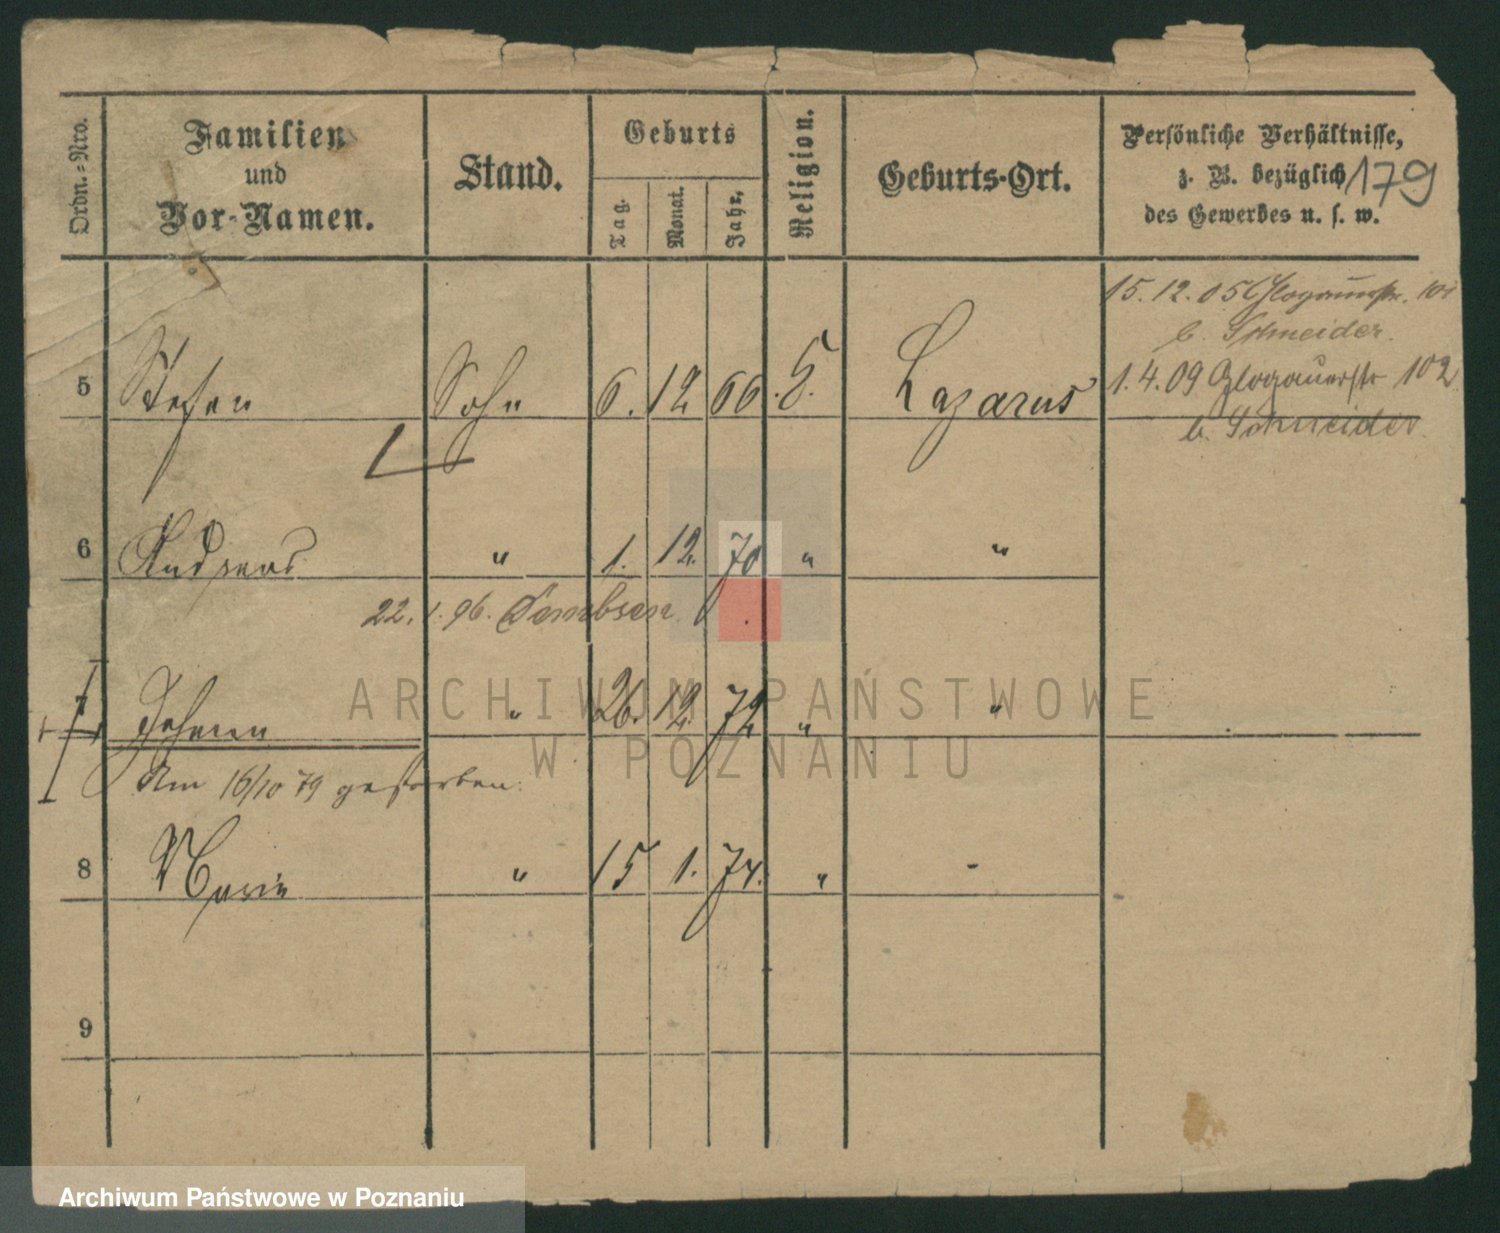 Ordn.=Nro.
Familien
und
Vor-Namen.
Stand.
Geburts
Tag.
Monat.
Jahr.
Religion.
Geburts-Ort.
Persönliche Verhältnisse,
z. B. bezüglich
des Gewerbes u. s. w.
179
15.12.05 Glogauerstr. 101
b. Schneider.
5 Stefan Sohn 6. 12 66. Lazarus 1.4.09 Glogauerstr 102
b. Schneider
6 Andreas " 1. 12. 70 " "
22.1.96. Dembsen
7 Johann " 26. 12. 72 " "
Am 16/10 79 gestorben.
8 Marie " 15 1. 74. " -
9
ARCHIWUM PAŃSTWOWE
W POZNANIU
Archiwum Państwowe w Poznaniu